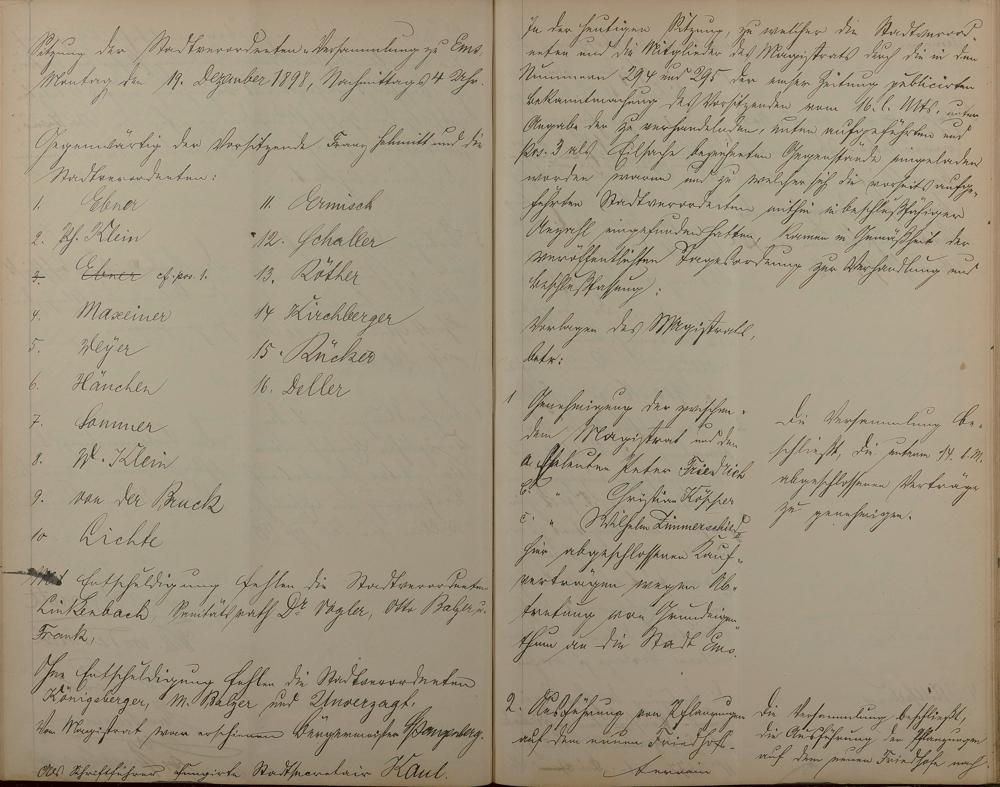 Sitzung der Stadtverordneten-Versammlung zu Ems
Montag den 19. Dezember 1898, Nachmittags 4 Uhr.
Gegenwärtig der Vorsitzende Franz Schmitt und die
Stadtverordneten:
1. Ebner
2. Ph. Klein
3. Ebner cf. pos. 1.
4. Maxeiner
5. Weyer
6. Hänchen
7. Sommer
8. W. Klein
9. von der Bruck
10 Lichte
11. Oermisch
12. Schaller
13. Röther
14 Kirchberger
15. Rücker
16. Deller
Mit Entschuldigung fehlen die Stadtverordneten
Linkenbach, Sanitätsrath Dr Vogler, Otto Balzer, u.
Frank,
Ohne Entschuldigung fehlen die Stadtverordneten
Königsberger, M. Balzer und Unverzagt.
Vom Magistrat waren erschienen Bürgermeister Spangenberg.
Als Schriftführer fungirte Stadtsecretair Kaul.
In der heutigen Sitzung, zu welcher die Stadtverord-
neten und die Mitglieder des Magistrats durch die in den
Nummern 294 und 295 der Emser Zeitung publicirten
Bekanntmachung des Vorsitzenden vom 16. l. Mts. unter
Angabe der zu verhandelnden, unten aufgeführten und
Pos. 3 als Eilsache bezeichneten Gegenstände eingeladen
worden waren und zu welcher sich die vorseits aufge-
führten Stadtverordneten mithin in beschlußfähiger
Anzahl eingefunden hatten, kamen in Gemäßheit der
veröffentlichten Tagesordnung zur Verhandlung und
Beschlußfassung:
Vorlagen des Magistrats,
betr:
1 Genehmigung der zwischen
dem Magistrat und den
a. Eheleuten Peter Friedrich
b. " Christian Köscher
c. " Wilhelm Zimmerschied
hier abgeschlossenen Kauf-
verträgen wegen Ab-
tretung von Grundeigen-
thum an die Stadt Ems.
Die Versammlung be-
schließt, die unterm 14. l. M.
abgeschlossenen Verträge
zu genehmigen.
2. Ausführung von Pflanzungen
auf dem neuen Friedhofs-
terrain
Die Versammlung beschließt,
die Ausführung der Pflanzungen
auf dem neuen Friedhofe nach